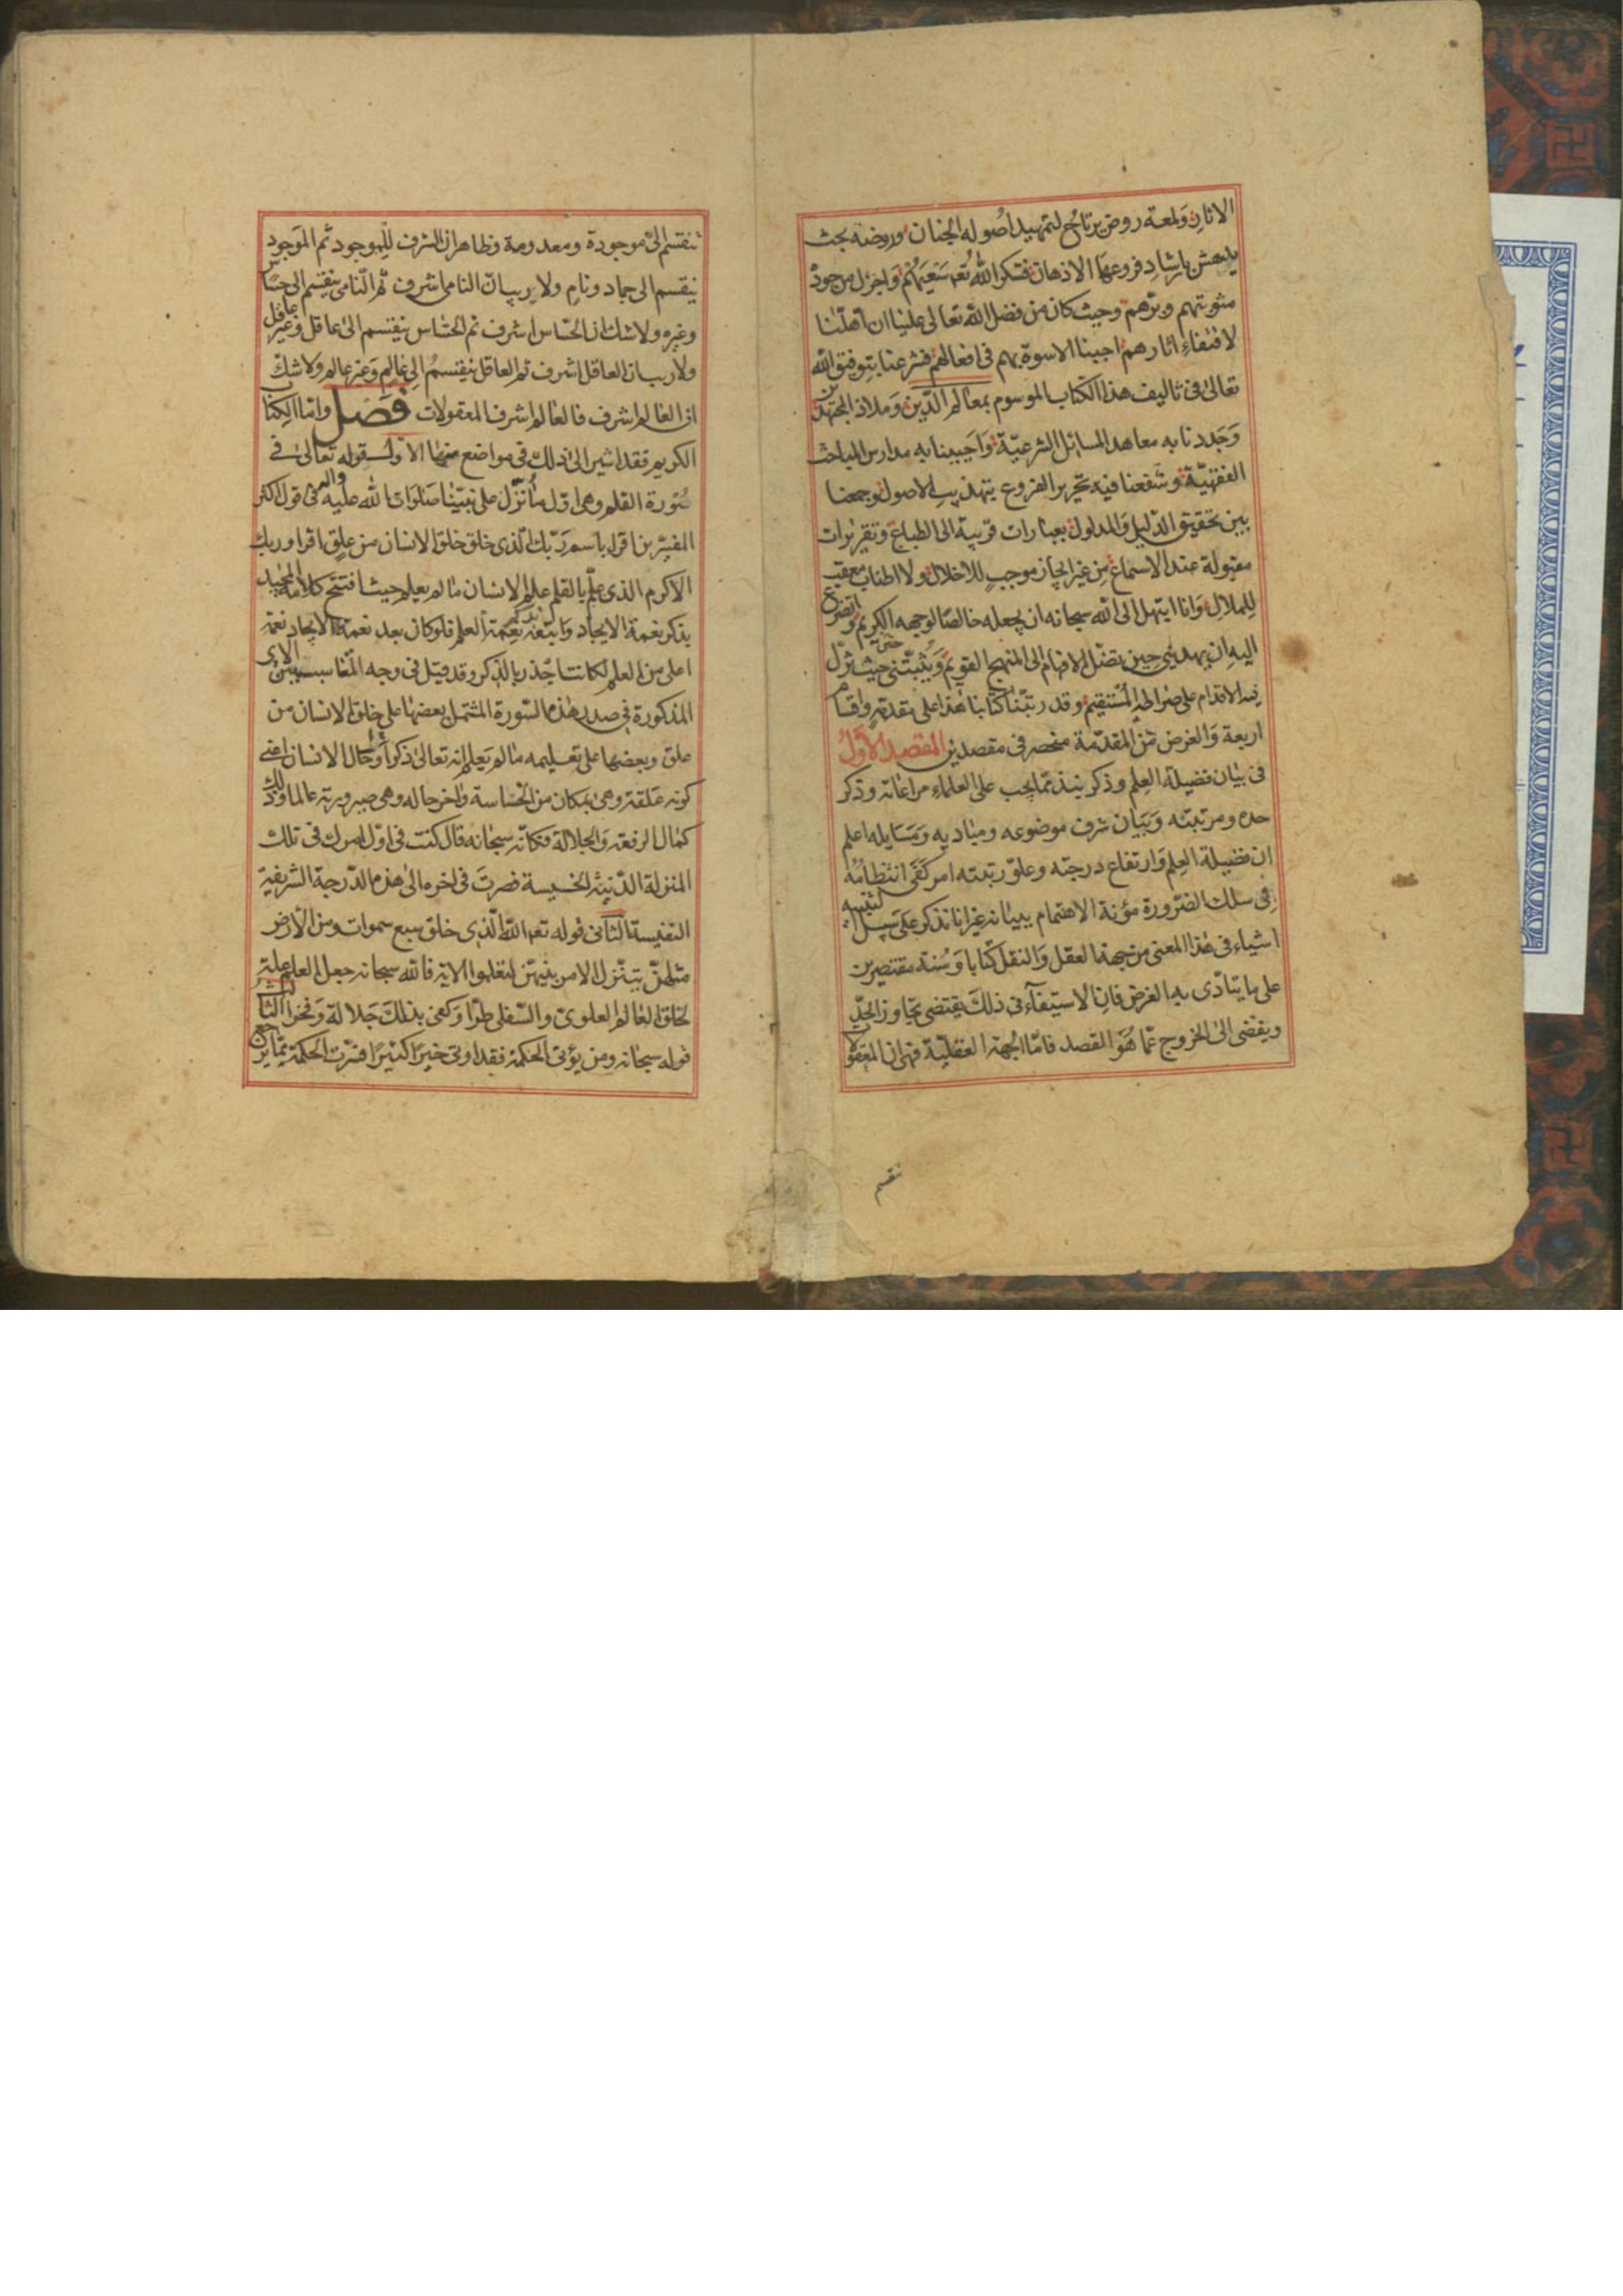 الاثار ولمعة روض يرتاح لتمهيد اصوله الجنان وروضة بحث
يدهش بارشاد فروعها الاذهان فشكر الله تعه سعيهم واجزل من جوده
مثوبتهم وبرهم وحيث كان من فضل الله تعالى علينا ان اهلنا
لاقتفاء اثارهم احببنا الاسوة بهم في افعالهم فشرعنا بتوفيق الله
تعالى في تاليف هذا الكتاب الموسوم بمعالم الدين وملاذ المجتهدين
وجددنا به معاهد المسائل الشرعية واحيينا به مدارس المباحث
الفقهية وشفعنا فيه تحرير الفروع بتهذيب الاصول وجمعنا
بين تحقيق الدليل والمدلول بعبارات قريبة الى الطباع وتقريرات
مقبولة عند الاسماع من غير ايجاز موجب للاخلال ولا اطناب معقب
للملال وانا ابتهل الى الله سبحانه ان يجعله خالصا لوجهه الكريم واتضرع
اليه ان يهديني حين تضل الافهام الى المنهج القويم ويثبتني حيث تزل
فيه الاقدام على صراطه المستقيم وقد رتبنا كتابنا هذا على مقدمة واقسام
اربعة والغرض من المقدمة منحصر في مقصدين المقصد الاول
في بيان فضيلة العلم وذكر نبذ مما يجب على العلماء مراعاته وذكر
حده ومرتبته وبيان شرف موضوعه ومباديه ومسايله اعلم
ان فضيلة العلم وارتفاع درجته وعلو رتبته امر كفى انتظامه
في سلك الضرورة مؤنة الاهتمام ببيانه غير انا نذكر على سبيل التنبيه
اشياء في هذا المعنى من جهة العقل والنقل كتابا وسنة مقتصرين
على ما يتادى به الغرض فان الاستيفاء في ذلك يقتضي تجاوز الحد
ويفضي الى الخروج عما هو القصد فاما الجهة العقلية فهي ان المعقولات
تنقسم
تنقسم الى موجودة ومعدومة وظاهر ان الشرف للموجود ثم الموجود
ينقسم الى جماد ونام ولا ريب ان النامي اشرف ثم النامي ينقسم الى حساس
وغيره ولا شك ان الحساس اشرف ثم الحساس ينقسم الى عاقل وغير عاقل
ولا ريب ان العاقل اشرف ثم العاقل ينقسم الى عالم وغير عالم ولا شك
ان العالم اشرف فالعالم اشرف المعقولات فصل واما الكتاب
الكريم فقد اشير الى ذلك في مواضع منها الاول قوله تعالى في
سورة القلم وهي اول ما نزل على نبينا صلوات الله عليه واله في قول اكثر
المفسرين اقرا باسم ربك الذي خلق خلق الانسان من علق اقرا وربك
الاكرم الذي علم بالقلم علم الانسان ما لم يعلم حيث افتتح كلامه المجيد
بذكر نعمة الايجاد واتبعه بذكر نعمة العلم فلو كان بعد نعمة الايجاد نعمة
اعلى من العلم لكانت اجدر بالذكر وقد قيل في وجه التناسب بين الاى
المذكورة في صدر هذه السورة المشتمل بعضها على خلق الانسان من
علق وبعضها على تعليمه ما لم يعلم انه تعالى ذكر اول حال الانسان اعني
كونه علقة وهي بمكان من الخساسة واخر حاله وهي صيرورته عالما وذلك
كمال الرفعة والجلالة فكانه سبحانه قال كنت في اول امرك في تلك
المنزلة الدنية الخسيسة فصرت في اخره الى هذه الدرجة الشريفة
النفيسة الثاني قوله تعه الله الذي خلق سبع سموات ومن الارض
مثلهن يتنزل الامر بينهن لتعلموا الاية فالله سبحانه جعل العلم علة
لخلق العالم العلوي والسفلي طرا وكفى بذلك جلالة وفخرا الثالث
قوله سبحانه ومن يؤتى الحكمة فقد اوتى خيرا كثيرا فسرت الحكمة بما يرجع